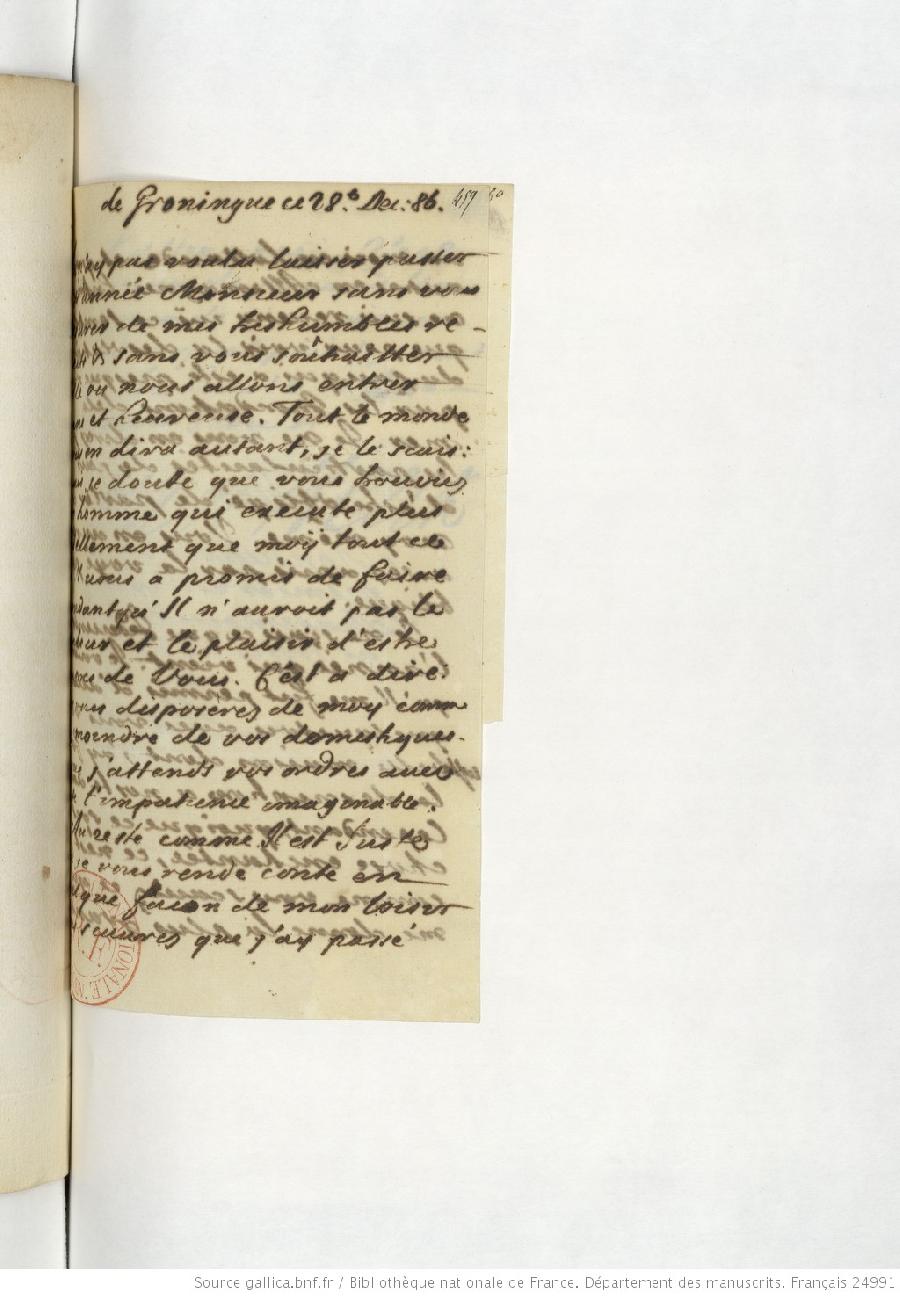 de Groningue ce 28.e Dec: 86.
459
n'ay pas voulu laisser passer
année Monsieur sans vous
de mes treshumbles re-
& sans vous soûhaitter
ou nous allons entrer
et heureuse. Tout le monde
en dira autant, je le scais:
je doute que vous trouvies
homme qui execute plus
ellement que moÿ tout ce
vous a promis de faire
dant qu'Il n'auroit pas le
eur et le plaisir d'estre
de Vous. C'est a dire
disposerés de moÿ comm
moindre de vos domestiques.
j'attends vos ordres avec
l'impatience imaginable.
Au reste comme Il est Juste
je vous rende conte en
que facon de mon loisir
que j'aÿ passé
Source gallica.bnf.fr / Bibliothèque nationale de France. Département des manuscrits. Français 24991